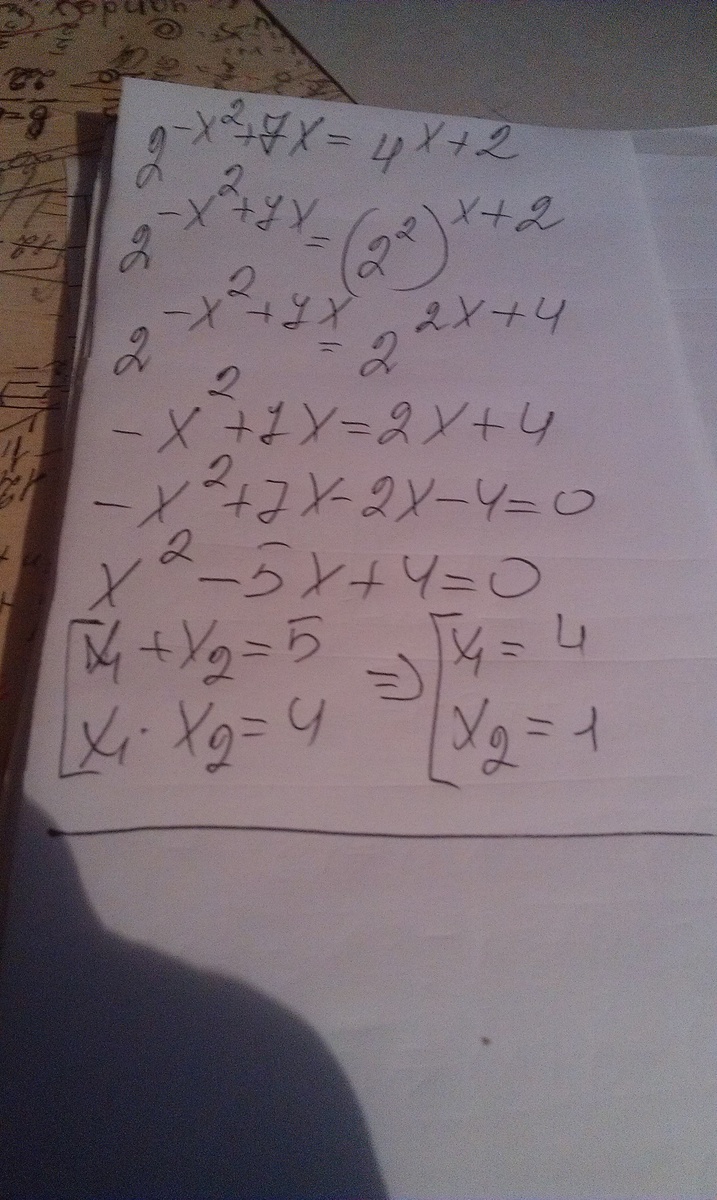 2^{-x^2+7x} = 4^{x+2}
2^{-x^2+7x} = (2^2)^{x+2}
2^{-x^2+7x} = 2^{2x+4}
-x^2+7x=2x+4
-x^2+7x-2x-4=0
x^2-5x+4=0
[x_1+x_2=5 => [x_1=4
x_1·x_2=4 x_2=1